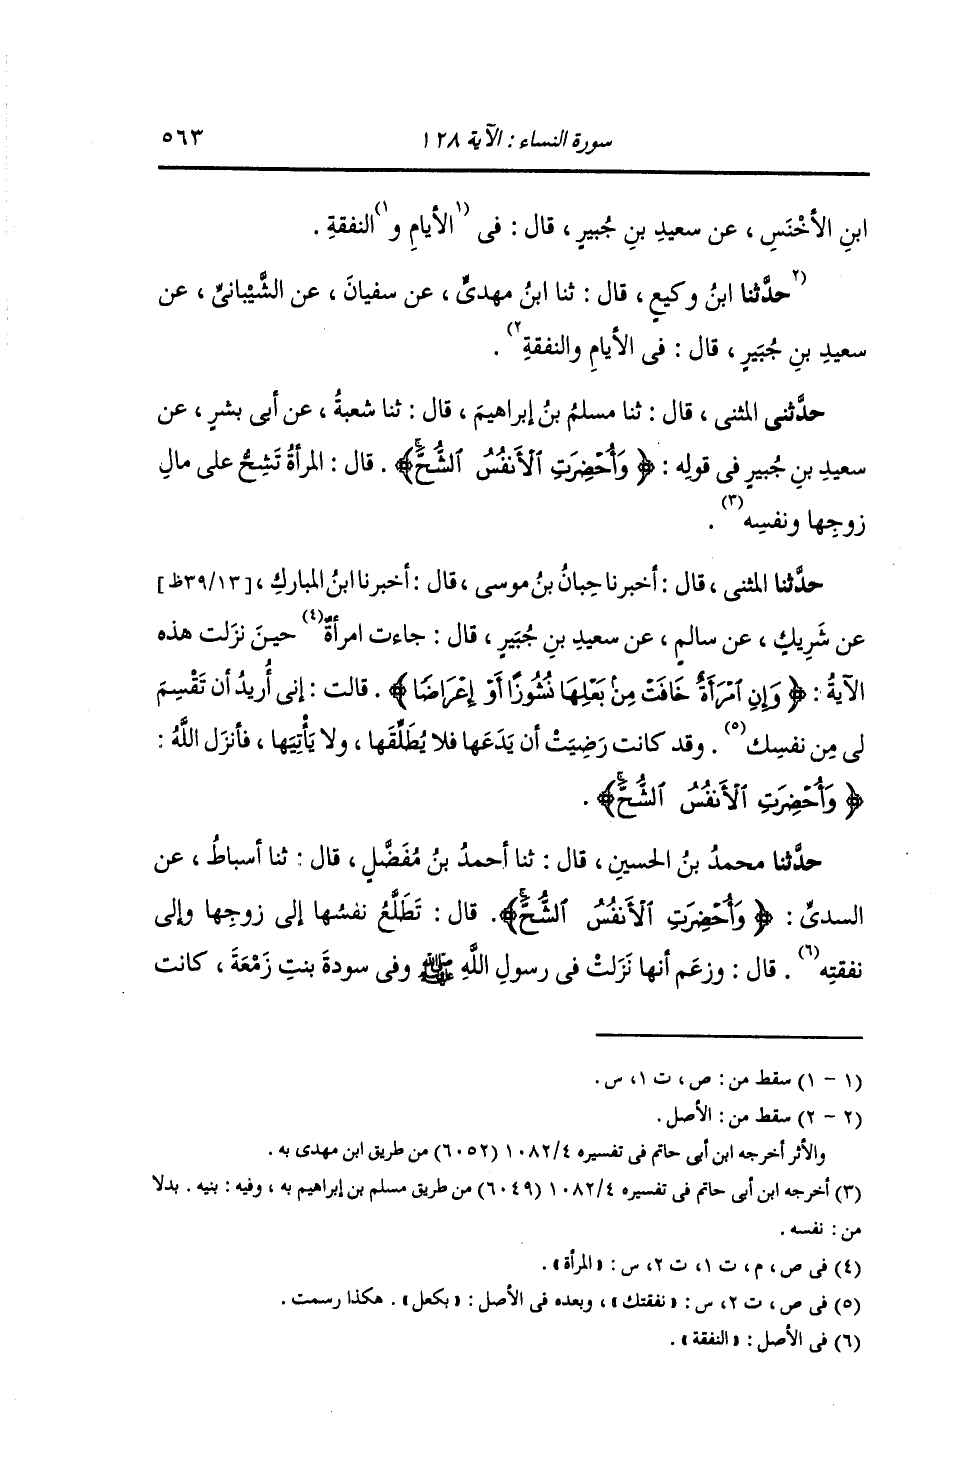 سورة النساء : الآية ١٢٨ ٥٦٣
ابنِ الأخْنَسِ ، عن سعيدِ بنِ جُبيرٍ ، قال : فى (١الأيامِ و١) النفقةِ .
(٢حدَّثنا ابنُ وكيعٍ ، قال : ثنا ابنُ مهدىٍّ ، عن سفيانَ ، عن الشَّيْبانىِّ ، عن
سعيدِ بنِ جُبَيرٍ ، قال : فى الأيامِ والنفقةِ٢) .
حدَّثنى المثنى ، قال : ثنا مسلمُ بنُ إبراهيمَ ، قال : ثنا شعبةُ ، عن أبى بشرٍ ، عن
سعيدِ بنِ جُبيرٍ فى قولِه : ﴿ وَأُحْضِرَتِ ٱلْأَنفُسُ ٱلشُّحَّۚ ﴾ . قال : المرأةُ تَشِحُّ على مالِ
زوجِها ونفسِه(٣) .
حدَّثنا المثنى ، قال : أخبرنا حِبانُ بنُ موسى ، قال : أخبرنا ابنُ المباركِ ، [٣٩/١٣ظ]
عن شَرِيكٍ ، عن سالمٍ ، عن سعيدِ بنِ جُبَيرٍ ، قال : جاءت امرأةٌ(٤) حينَ نزَلت هذه
الآيةُ : ﴿ وَإِنِ ٱمْرَأَةٌ خَافَتْ مِنۢ بَعْلِهَا نُشُوزًا أَوْ إِعْرَاضًا ﴾ . قالت : إنى أُريدُ أن تَقْسِمَ
لى مِن نفسِك(٥) . وقد كانت رَضِيَتْ أن يَدَعَها فلا يُطَلِّقَها ، ولا يَأْتِيَها ، فأنزَل اللَّهُ :
﴿ وَأُحْضِرَتِ ٱلْأَنفُسُ ٱلشُّحَّۚ ﴾ .
حدَّثنا محمدُ بنُ الحسينِ ، قال : ثنا أحمدُ بنُ مُفَضَّلٍ ، قال : ثنا أسباطُ ، عن
السدىِّ : ﴿ وَأُحْضِرَتِ ٱلْأَنفُسُ ٱلشُّحَّۚ ﴾ . قال : تَطَلَّعُ نفسُها إلى زوجِها وإلى
نفقتِه(٦) . قال : وزعَم أنها نَزَلتْ فى رسولِ اللَّهِ ﷺ وفى سودةَ بنتِ زَمْعَةَ ، كانت
(١ - ١) سقط من : ص ، ت ١، س .
(٢ - ٢) سقط من : الأصل .
والأثر أخرجه ابن أبى حاتم فى تفسيره ١٠٨٢/٤ (٦٠٥٢) من طريق ابن مهدى به .
(٣) أخرجه ابن أبى حاتم فى تفسيره ١٠٨٢/٤ (٦٠٤٩) من طريق مسلم بن إبراهيم به ، وفيه : بنيه . بدلا
من : نفسه .
(٤) فى ص ، م ، ت ١، ت ٢، س : « المرأة » .
(٥) فى ص ، ت ٢، س : « نفقتك » ، وبعده فى الأصل : « بكعل » . هكذا رسمت .
(٦) فى الأصل : « النفقة » .